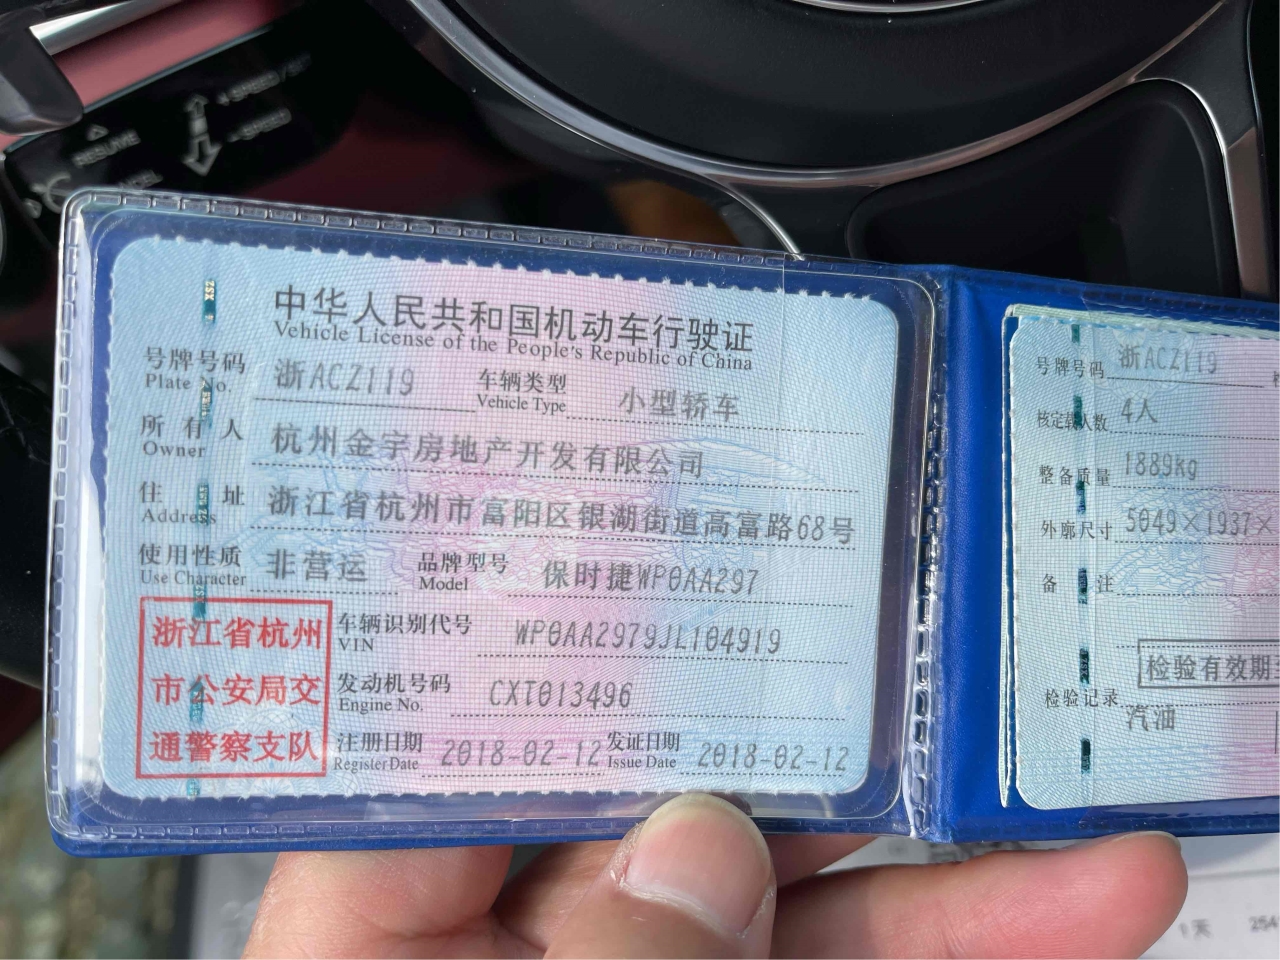 RESUME
+SPEED
-SPEED
中华人民共和国机动车行驶证
Vehicle License of the People's Republic of China
号牌号码 浙ACZ119 车辆类型 小型轿车
Plate No. Vehicle Type
所有人 杭州金宇房地产开发有限公司
Owner
住址 浙江省杭州市富阳区银湖街道高富路68号
Address
使用性质 非营运 品牌型号 保时捷WP0AA297
Use Character Model
浙江省杭州
市公安局交
通警察支队
车辆识别代号 WP0AA2979JL104919
VIN
发动机号码 CXT013496
Engine No.
注册日期 2018-02-12 发证日期 2018-02-12
Register Date Issue Date
号牌号码 浙ACZ119
核定载人数 4人
整备质量 1889kg
外廓尺寸 5049×1937×
备注
检验有效期
检验记录
汽油